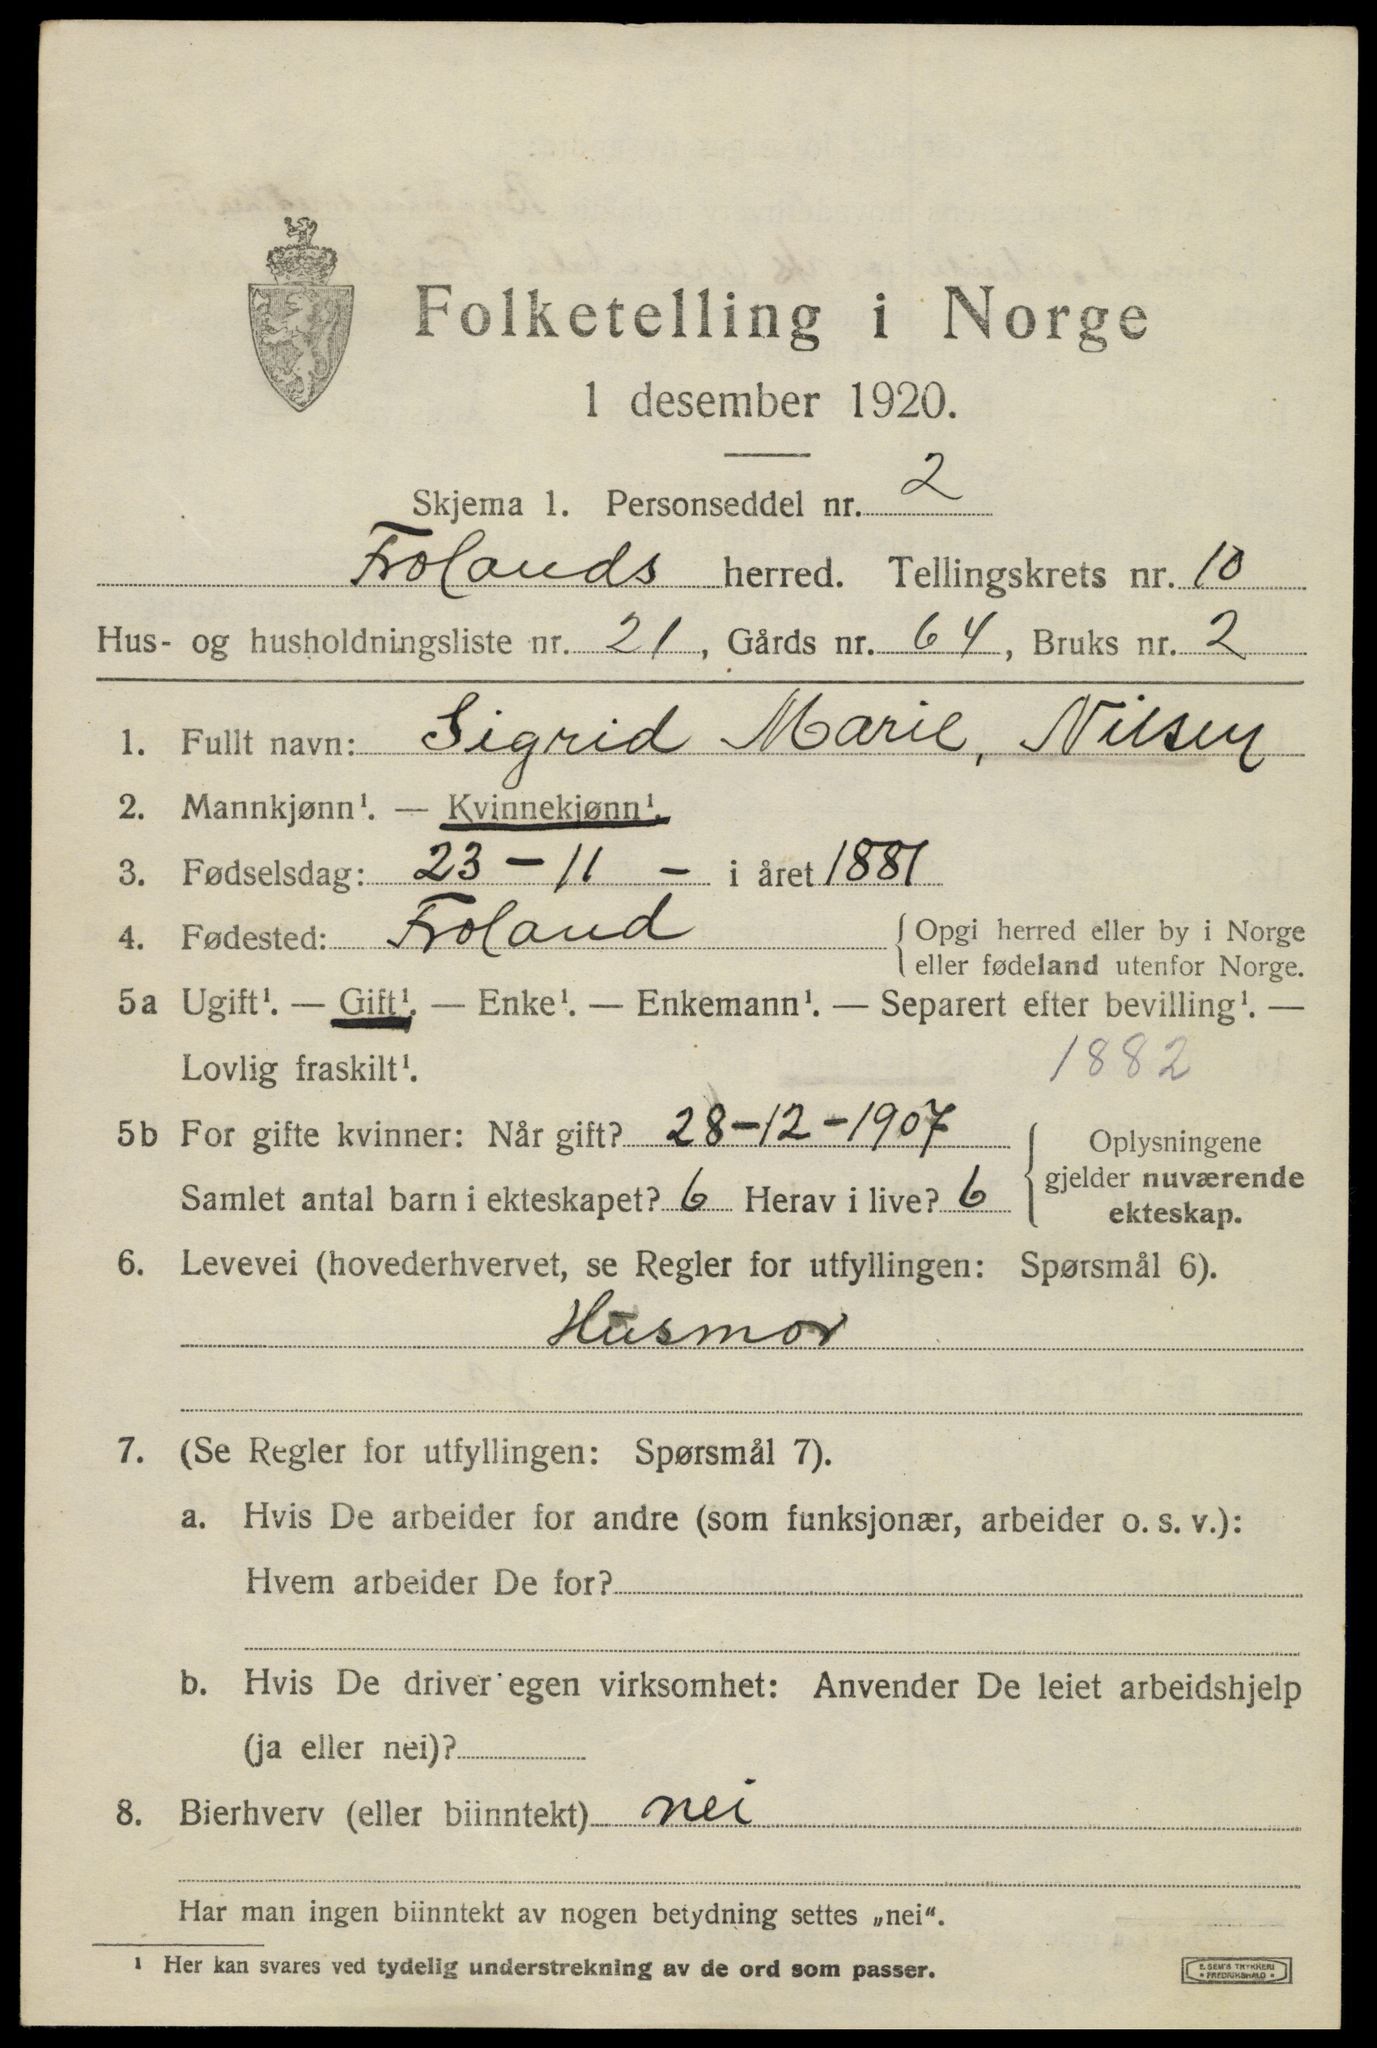 Folketelling i Norge
1 desember 1920.
Skjema 1. Personseddel nr. 2
Frolands herred. Tellingskrets nr. 10
Hus- og husholdningsliste nr. 21, Gårds nr. 64, Bruks nr. 2
1. Fullt navn: Sigrid Marie, Nilsen
2. Mannkjønn¹. — Kvinnekjønn¹.
3. Fødselsdag: 23 – 11 – i året 1881
4. Fødested: Froland { Opgi herred eller by i Norge
eller fødeland utenfor Norge.
5a Ugift¹. — Gift¹. — Enke¹. — Enkemann¹. — Separert efter bevilling¹. —
Lovlig fraskilt¹. 1882
5b For gifte kvinner: Når gift? 28–12–1907 { Oplysningene
Samlet antal barn i ekteskapet? 6 Herav i live? 6 gjelder nuværende
ekteskap.
6. Levevei (hovederhvervet, se Regler for utfyllingen: Spørsmål 6).
Husmor
7. (Se Regler for utfyllingen: Spørsmål 7).
a. Hvis De arbeider for andre (som funksjonær, arbeider o. s. v.):
Hvem arbeider De for?
b. Hvis De driver egen virksomhet: Anvender De leiet arbeidshjelp
(ja eller nei)?
8. Bierhverv (eller biinntekt) nei
Har man ingen biinntekt av nogen betydning settes „nei“.
¹ Her kan svares ved tydelig understrekning av de ord som passer.
E. SEM'S TRYKKERI
* FREDRIKSHALD *